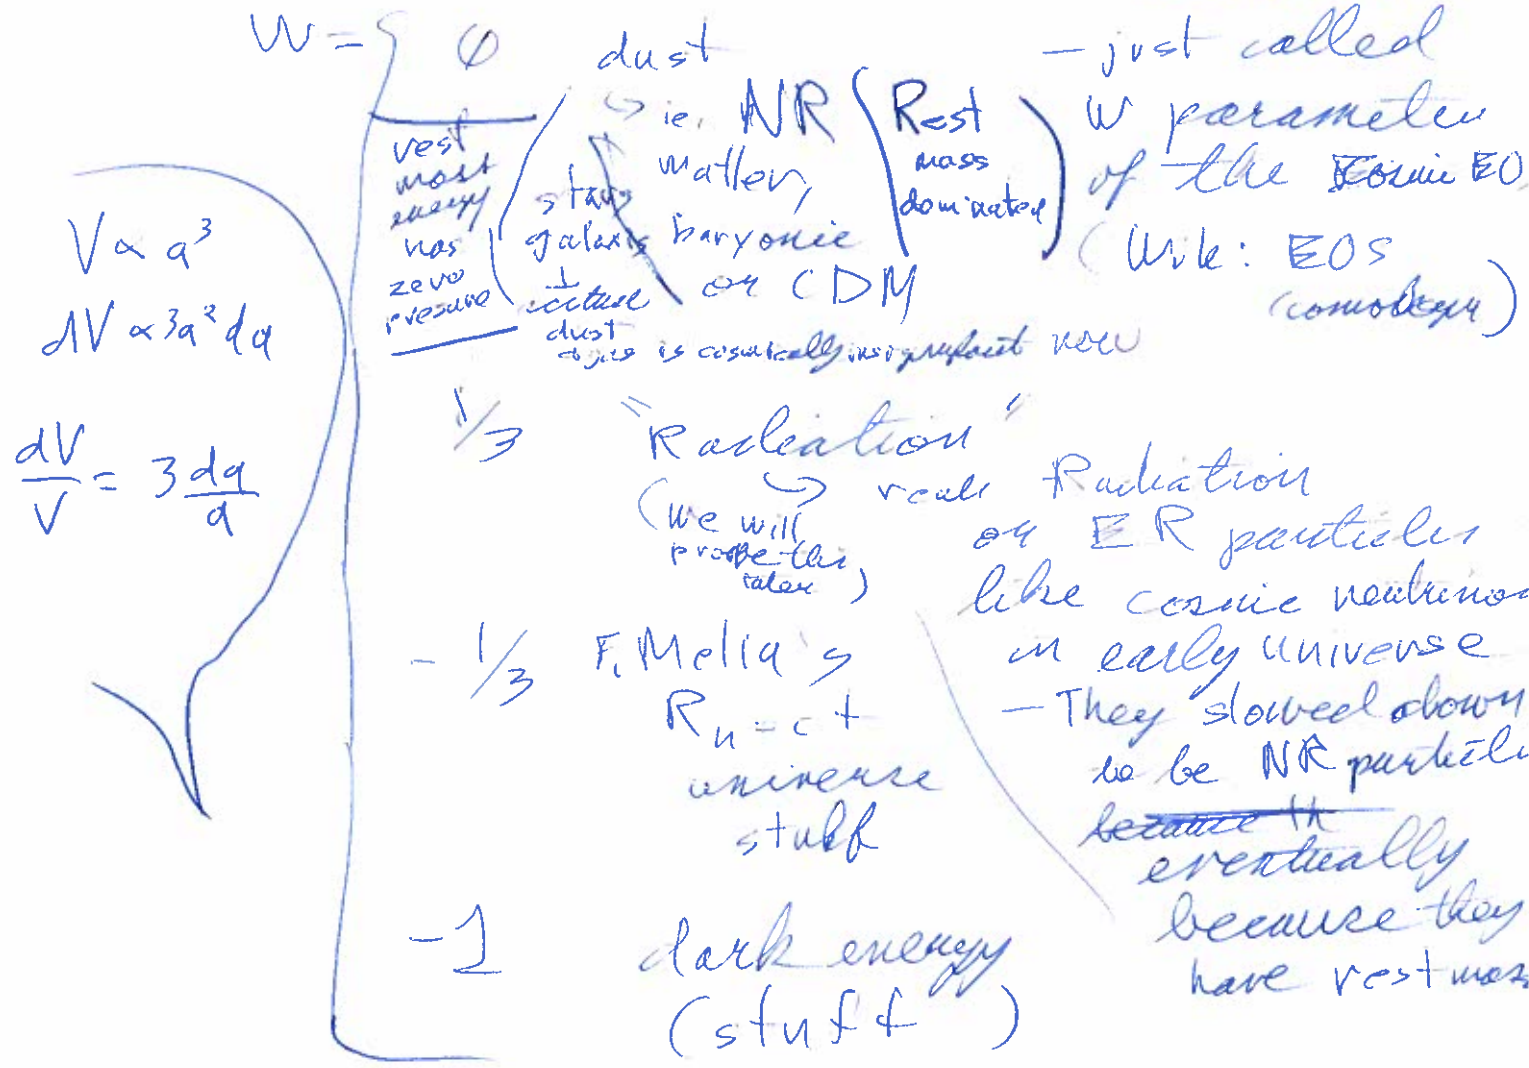 W = { 0 dust
↳ ie. NR (Rest
mass
dominated)
matter,
baryonic
or CDM
rest
energy
has
zero
presure
stars
galaxis
dust
is cosmically insignificant now
- just called
W parameter
of the Cosmic EO
(Wik: EOS
V ∝ a³
dV ∝ 3a² da
dV/V = 3 da/a
1/3 "Radiation"
(we will
later)
↳ Radiation
or ER particles
like cosmic neutrinos
in early universe
- They slowed down
to be NR particle
because th
eventually
because they
have rest mass
-1/3 F. Melia's
R_H = ct
universe
stuff
-1 dark energy
(stuff)